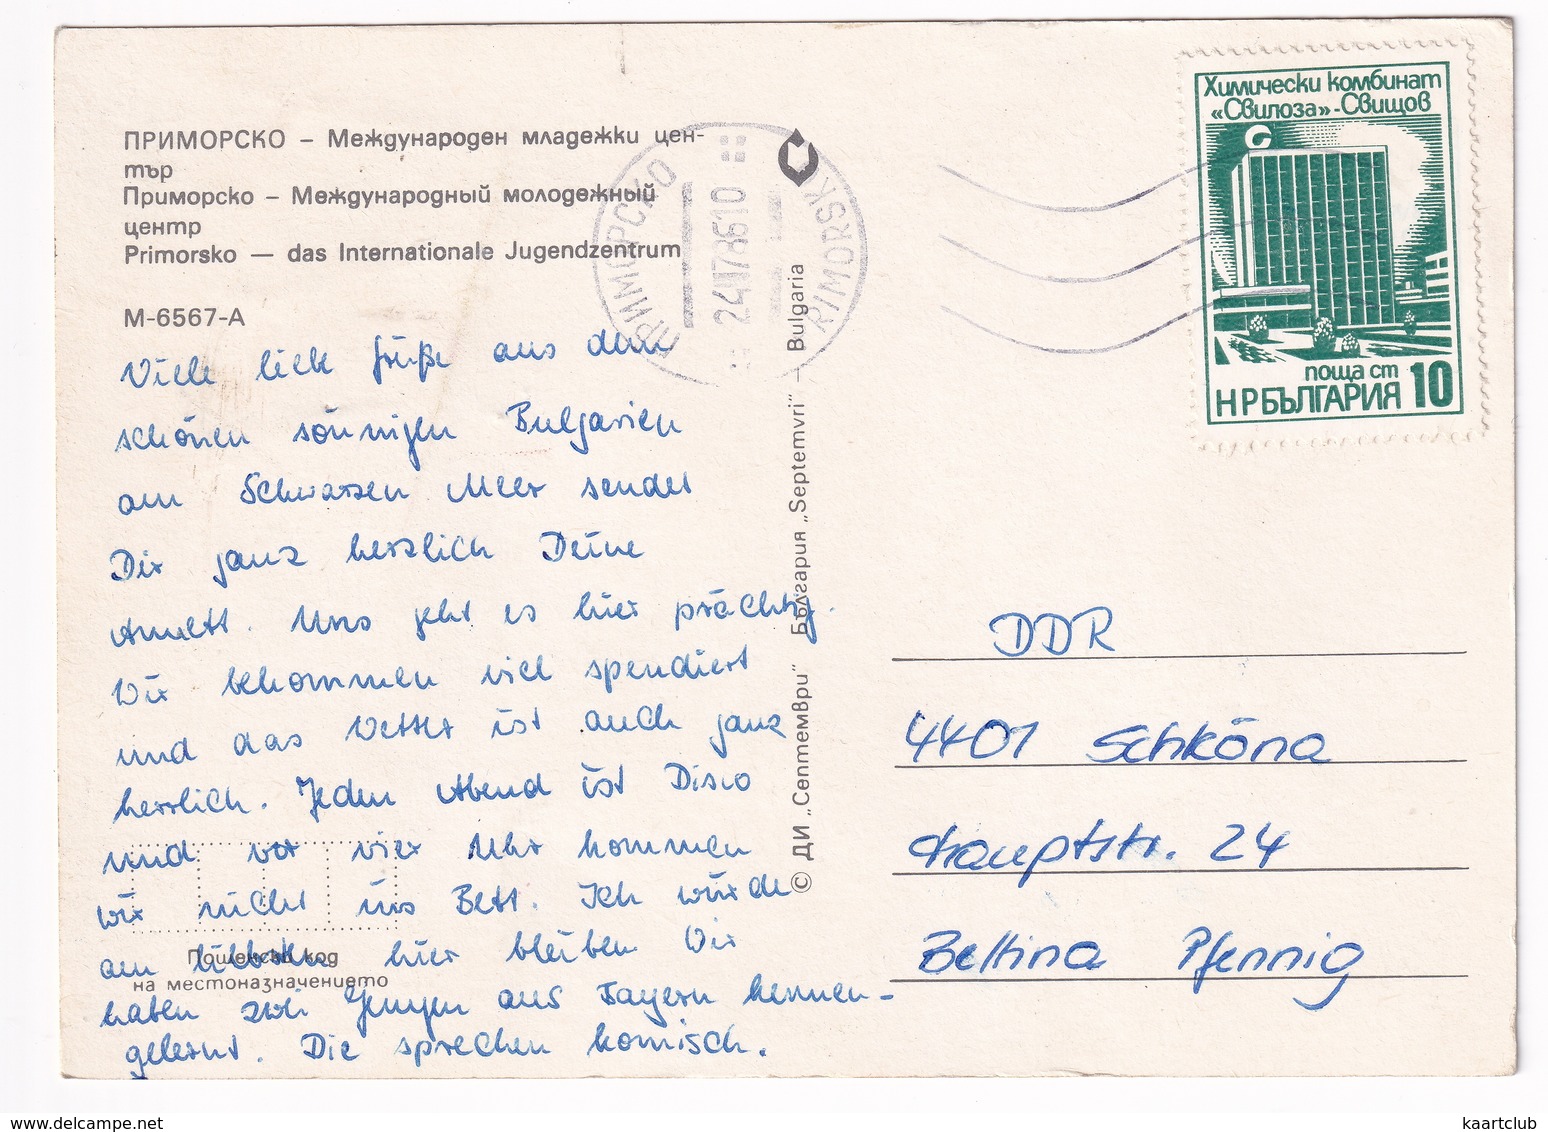 ПРИМОРСКО – Международен младежки цен-
тър
Приморско – Международный молодежный
центр
Primorsko — das Internationale Jugendzentrum
М-6567-А
Viele liebe Grüße aus dem
schönen sonnigen Bulgarien
am Schwarzen Meer sendet
Dir ganz herzlich Deine
Annett. Uns geht es hier prächtig.
Wir bekommen viel spendiert
und das Wetter ist auch ganz
herrlich. Jeden Abend ist Disco
und vor vier Uhr kommen
wir nicht ins Bett. Ich würde
am liebsten hier bleiben Wir
haben zwei Jungen aus Bayern kennen-
gelernt. Die sprechen komisch.
Пощенски код
на местоназначението
© ДИ „Септември" България „Septemvri" – Bulgaria
ПРИМОРСКО
PRIMORSK
Химически комбинат
«Свилоза»-Свищов
поща ст 10
НРБЪЛГАРИЯ
DDR
4401 Schköna
Hauptstr. 24
Bettina Pfennig
www.delcampe.net
kaartclub